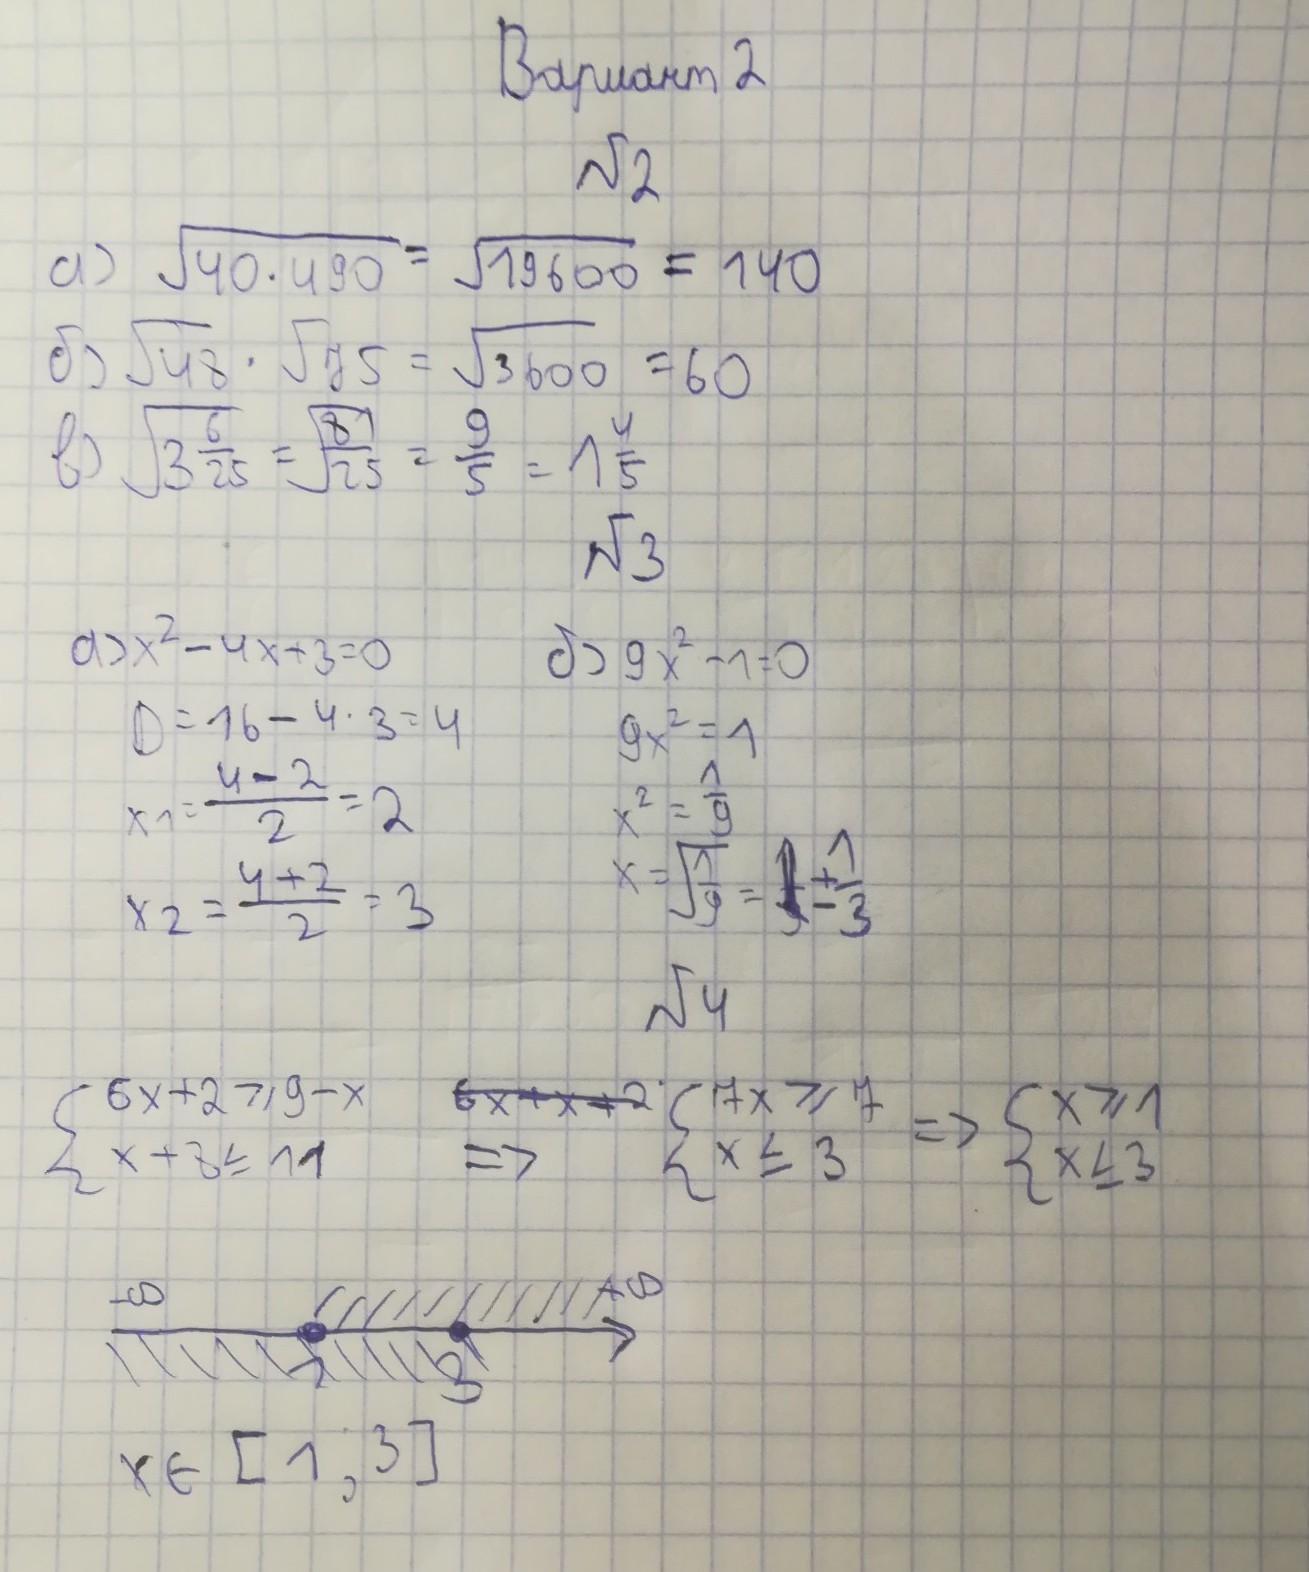 Вариант 2
№2
а) √40·490 = √19600 = 140
б) √48 · √75 = √3600 = 60
в) √3 6/25 = √81/25 = 9/5 = 1 4/5
№3
а) x² - 4x + 3 = 0
D = 16 - 4·3 = 4
x1 = (4 - 2)/2 = 2
x2 = (4 + 2)/2 = 3
б) 9x² - 1 = 0
9x² = 1
x² = 1/9
x = √1/9 = ± 1/3
№4
{ 6x + 2 ⩾ 9 - x => { 7x ⩾ 7 => { x ⩾ 1
x + 8 ≤ 11 x ≤ 3 x ≤ 3
-∞ +∞
1 3
x ∈ [1; 3]